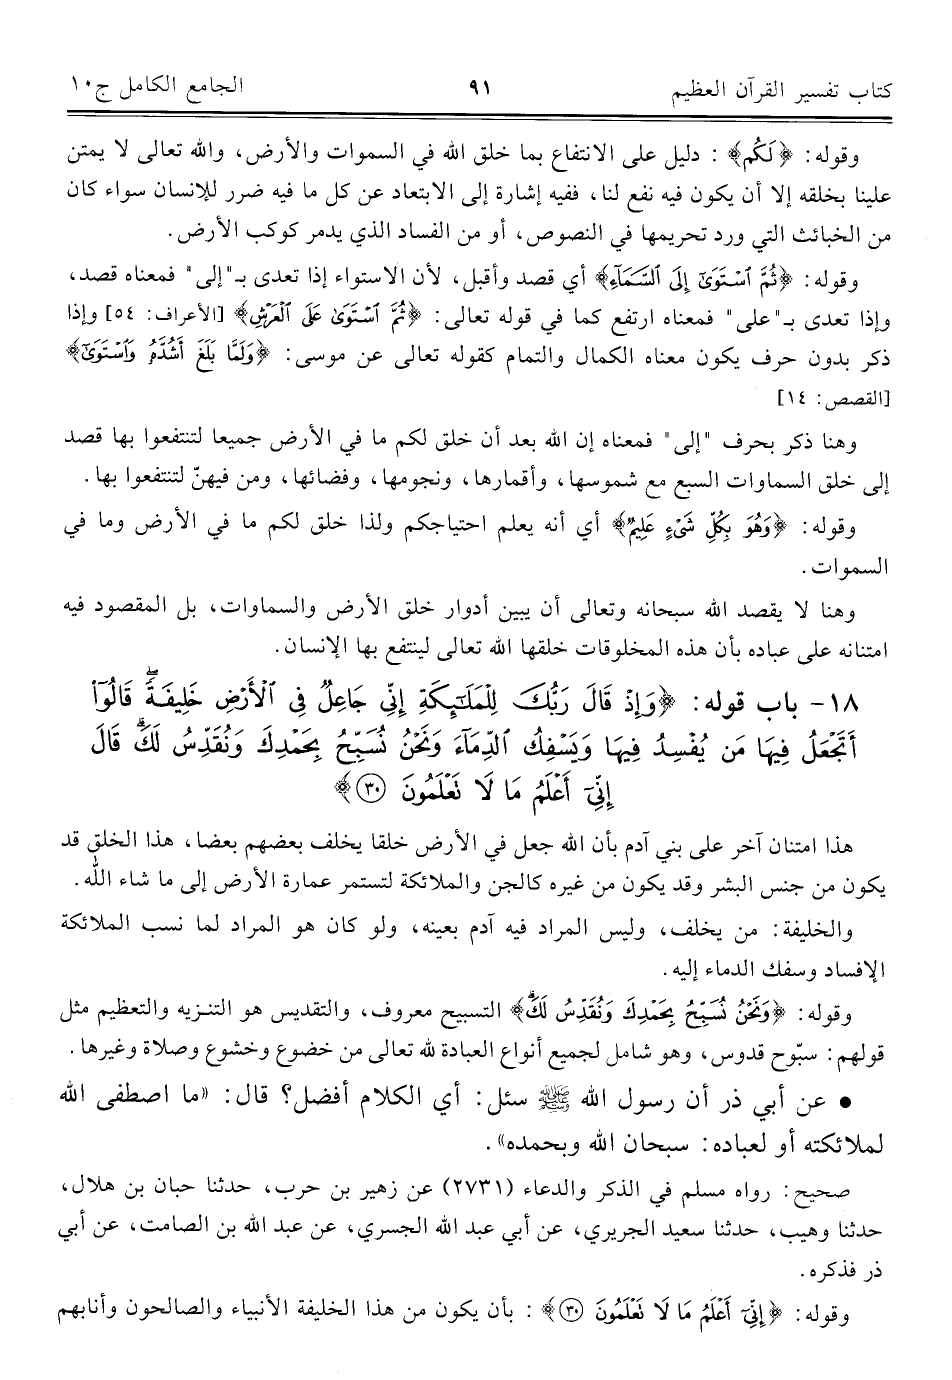 كتاب تفسير القرآن العظيم ٩١ الجامع الكامل ج١٠
وقوله: ﴿لَكُم﴾ : دليل على الانتفاع بما خلق الله في السموات والأرض، والله تعالى لا يمتن
علينا بخلقه إلا أن يكون فيه نفع لنا، ففيه إشارة إلى الابتعاد عن كل ما فيه ضرر للإنسان سواء كان
من الخبائث التي ورد تحريمها في النصوص، أو من الفساد الذي يدمر كوكب الأرض.
وقوله: ﴿ثُمَّ ٱسْتَوَىٰٓ إِلَى ٱلسَّمَآءِ﴾ أي قصد وأقبل، لأن الاستواء إذا تعدى بـ"إلى" فمعناه قصد،
وإذا تعدى بـ"على" فمعناه ارتفع كما في قوله تعالى: ﴿ثُمَّ ٱسْتَوَىٰ عَلَى ٱلْعَرْشِ﴾ [الأعراف: ٥٤] وإذا
ذكر بدون حرف يكون معناه الكمال والتمام كقوله تعالى عن موسى: ﴿وَلَمَّا بَلَغَ أَشُدَّهُۥ وَٱسْتَوَىٰٓ﴾
[القصص: ١٤]
وهنا ذكر بحرف "إلى" فمعناه إن الله بعد أن خلق لكم ما في الأرض جميعا لتنتفعوا بها قصد
إلى خلق السماوات السبع مع شموسها، وأقمارها، ونجومها، وفضائها، ومن فيهنّ لتنتفعوا بها.
وقوله: ﴿وَهُوَ بِكُلِّ شَىْءٍ عَلِيمٌ﴾ أي أنه يعلم احتياجكم ولذا خلق لكم ما في الأرض وما في
السموات.
وهنا لا يقصد الله سبحانه وتعالى أن يبين أدوار خلق الأرض والسماوات، بل المقصود فيه
امتنانه على عباده بأن هذه المخلوقات خلقها الله تعالى لينتفع بها الإنسان.
١٨- باب قوله: ﴿وَإِذْ قَالَ رَبُّكَ لِلْمَلَٰٓئِكَةِ إِنِّى جَاعِلٌ فِى ٱلْأَرْضِ خَلِيفَةً ۖ قَالُوٓا۟
أَتَجْعَلُ فِيهَا مَن يُفْسِدُ فِيهَا وَيَسْفِكُ ٱلدِّمَآءَ وَنَحْنُ نُسَبِّحُ بِحَمْدِكَ وَنُقَدِّسُ لَكَ ۖ قَالَ
إِنِّىٓ أَعْلَمُ مَا لَا تَعْلَمُونَ ٣٠﴾
هذا امتنان آخر على بني آدم بأن الله جعل في الأرض خلقا يخلف بعضهم بعضا، هذا الخلق قد
يكون من جنس البشر وقد يكون من غيره كالجن والملائكة لتستمر عمارة الأرض إلى ما شاء الله.
والخليفة: من يخلف، وليس المراد فيه آدم بعينه، ولو كان هو المراد لما نسب الملائكة
الإفساد وسفك الدماء إليه.
وقوله: ﴿وَنَحْنُ نُسَبِّحُ بِحَمْدِكَ وَنُقَدِّسُ لَكَ ۖ﴾ التسبيح معروف، والتقديس هو التنزيه والتعظيم مثل
قولهم: سبّوح قدوس، وهو شامل لجميع أنواع العبادة لله تعالى من خضوع وخشوع وصلاة وغيرها.
• عن أبي ذر أن رسول الله ﷺ سئل: أي الكلام أفضل؟ قال: «ما اصطفى الله
لملائكته أو لعباده: سبحان الله وبحمده».
صحيح: رواه مسلم في الذكر والدعاء (٢٧٣١) عن زهير بن حرب، حدثنا حبان بن هلال،
حدثنا وهيب، حدثنا سعيد الجريري، عن أبي عبد الله الجسري، عن عبد الله بن الصامت، عن أبي
ذر فذكره.
وقوله: ﴿إِنِّىٓ أَعْلَمُ مَا لَا تَعْلَمُونَ ٣٠﴾ : بأن يكون من هذا الخليفة الأنبياء والصالحون وأنابهم